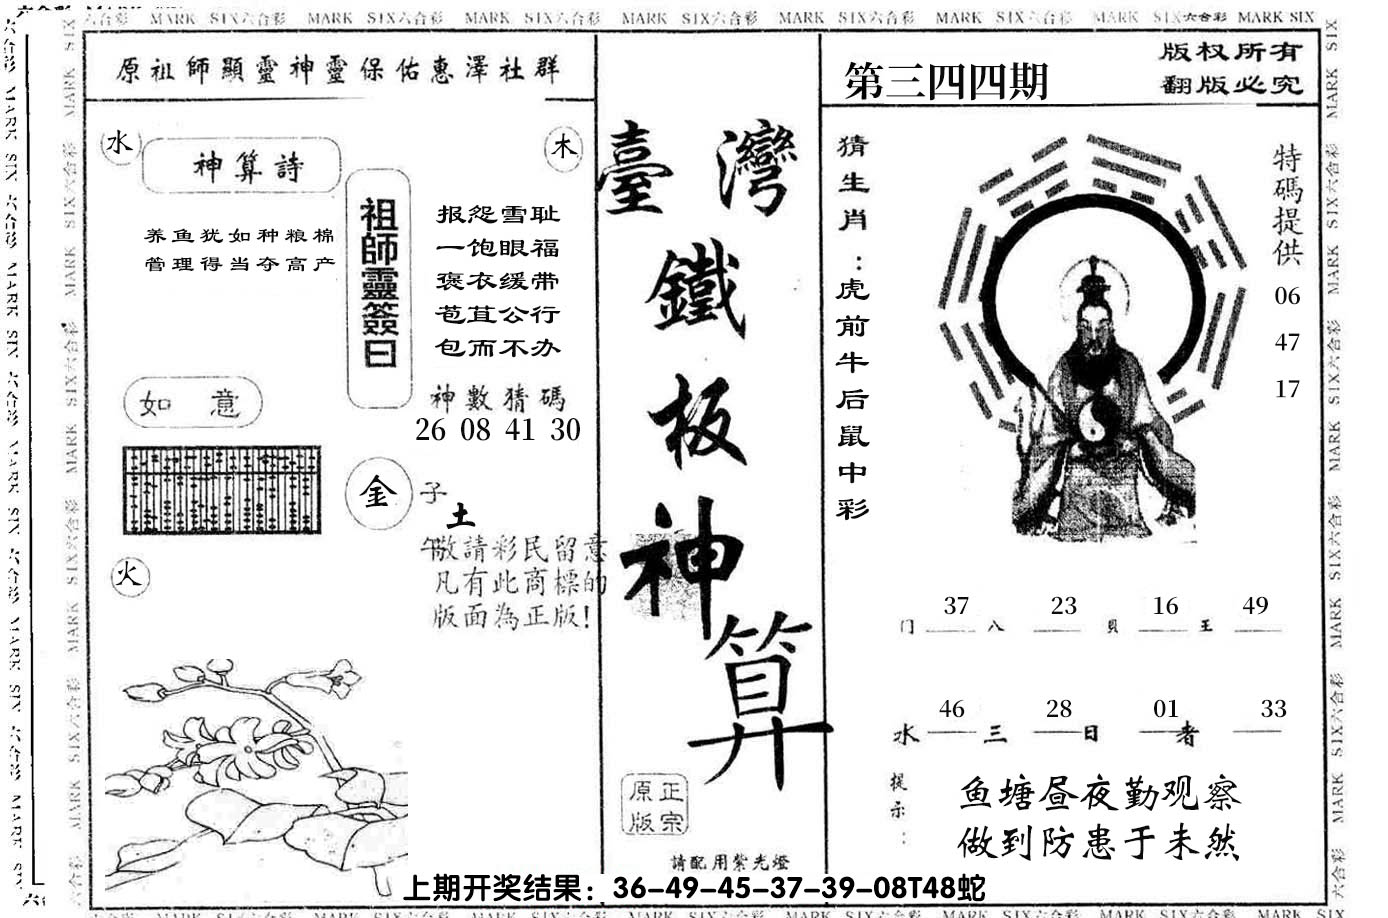 六合彩 MARK SIX六合彩 MARK SIX六合彩 MARK SIX六合彩 MARK SIX六合彩 MARK SIX六合彩 MARK SIX六合彩 MARK SIX六合彩 MARK SIX
原祖師顯靈神靈保佑惠澤社群
水
神算詩
木
养鱼犹如种粮棉
管理得当夺高产
祖師靈簽曰
报怨雪耻
一饱眼福
褒衣缓带
苞苴公行
包而不办
神數猜碼
26 08 41 30
如 意
金
子
土
午
敬請彩民留意
凡有此商標的
版面為正版!
火
臺灣
鐵
板
神
算
正宗
原版
請配用紫光燈
第三四四期
版权所有
翻版必究
猜生肖:虎前牛后鼠中彩
特碼提供
06
47
17
门 37 八 23 貝 16 王 49
水 46 三 28 日 01 者 33
提示:
鱼塘昼夜勤观察
做到防患于未然
上期开奖结果：36-49-45-37-39-08T48蛇